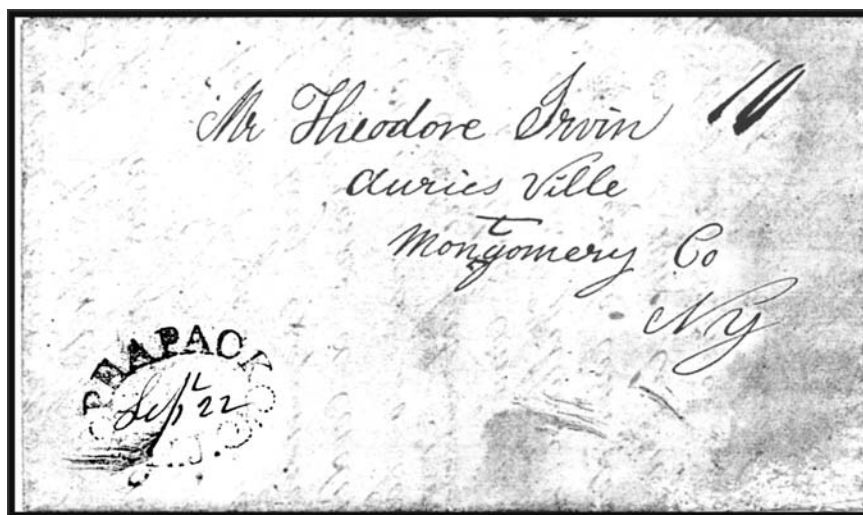 Mr Theodore Irvin 10
Auries Ville
Montgomery Co
NY
PEAPACK
Sept 22
N.J.